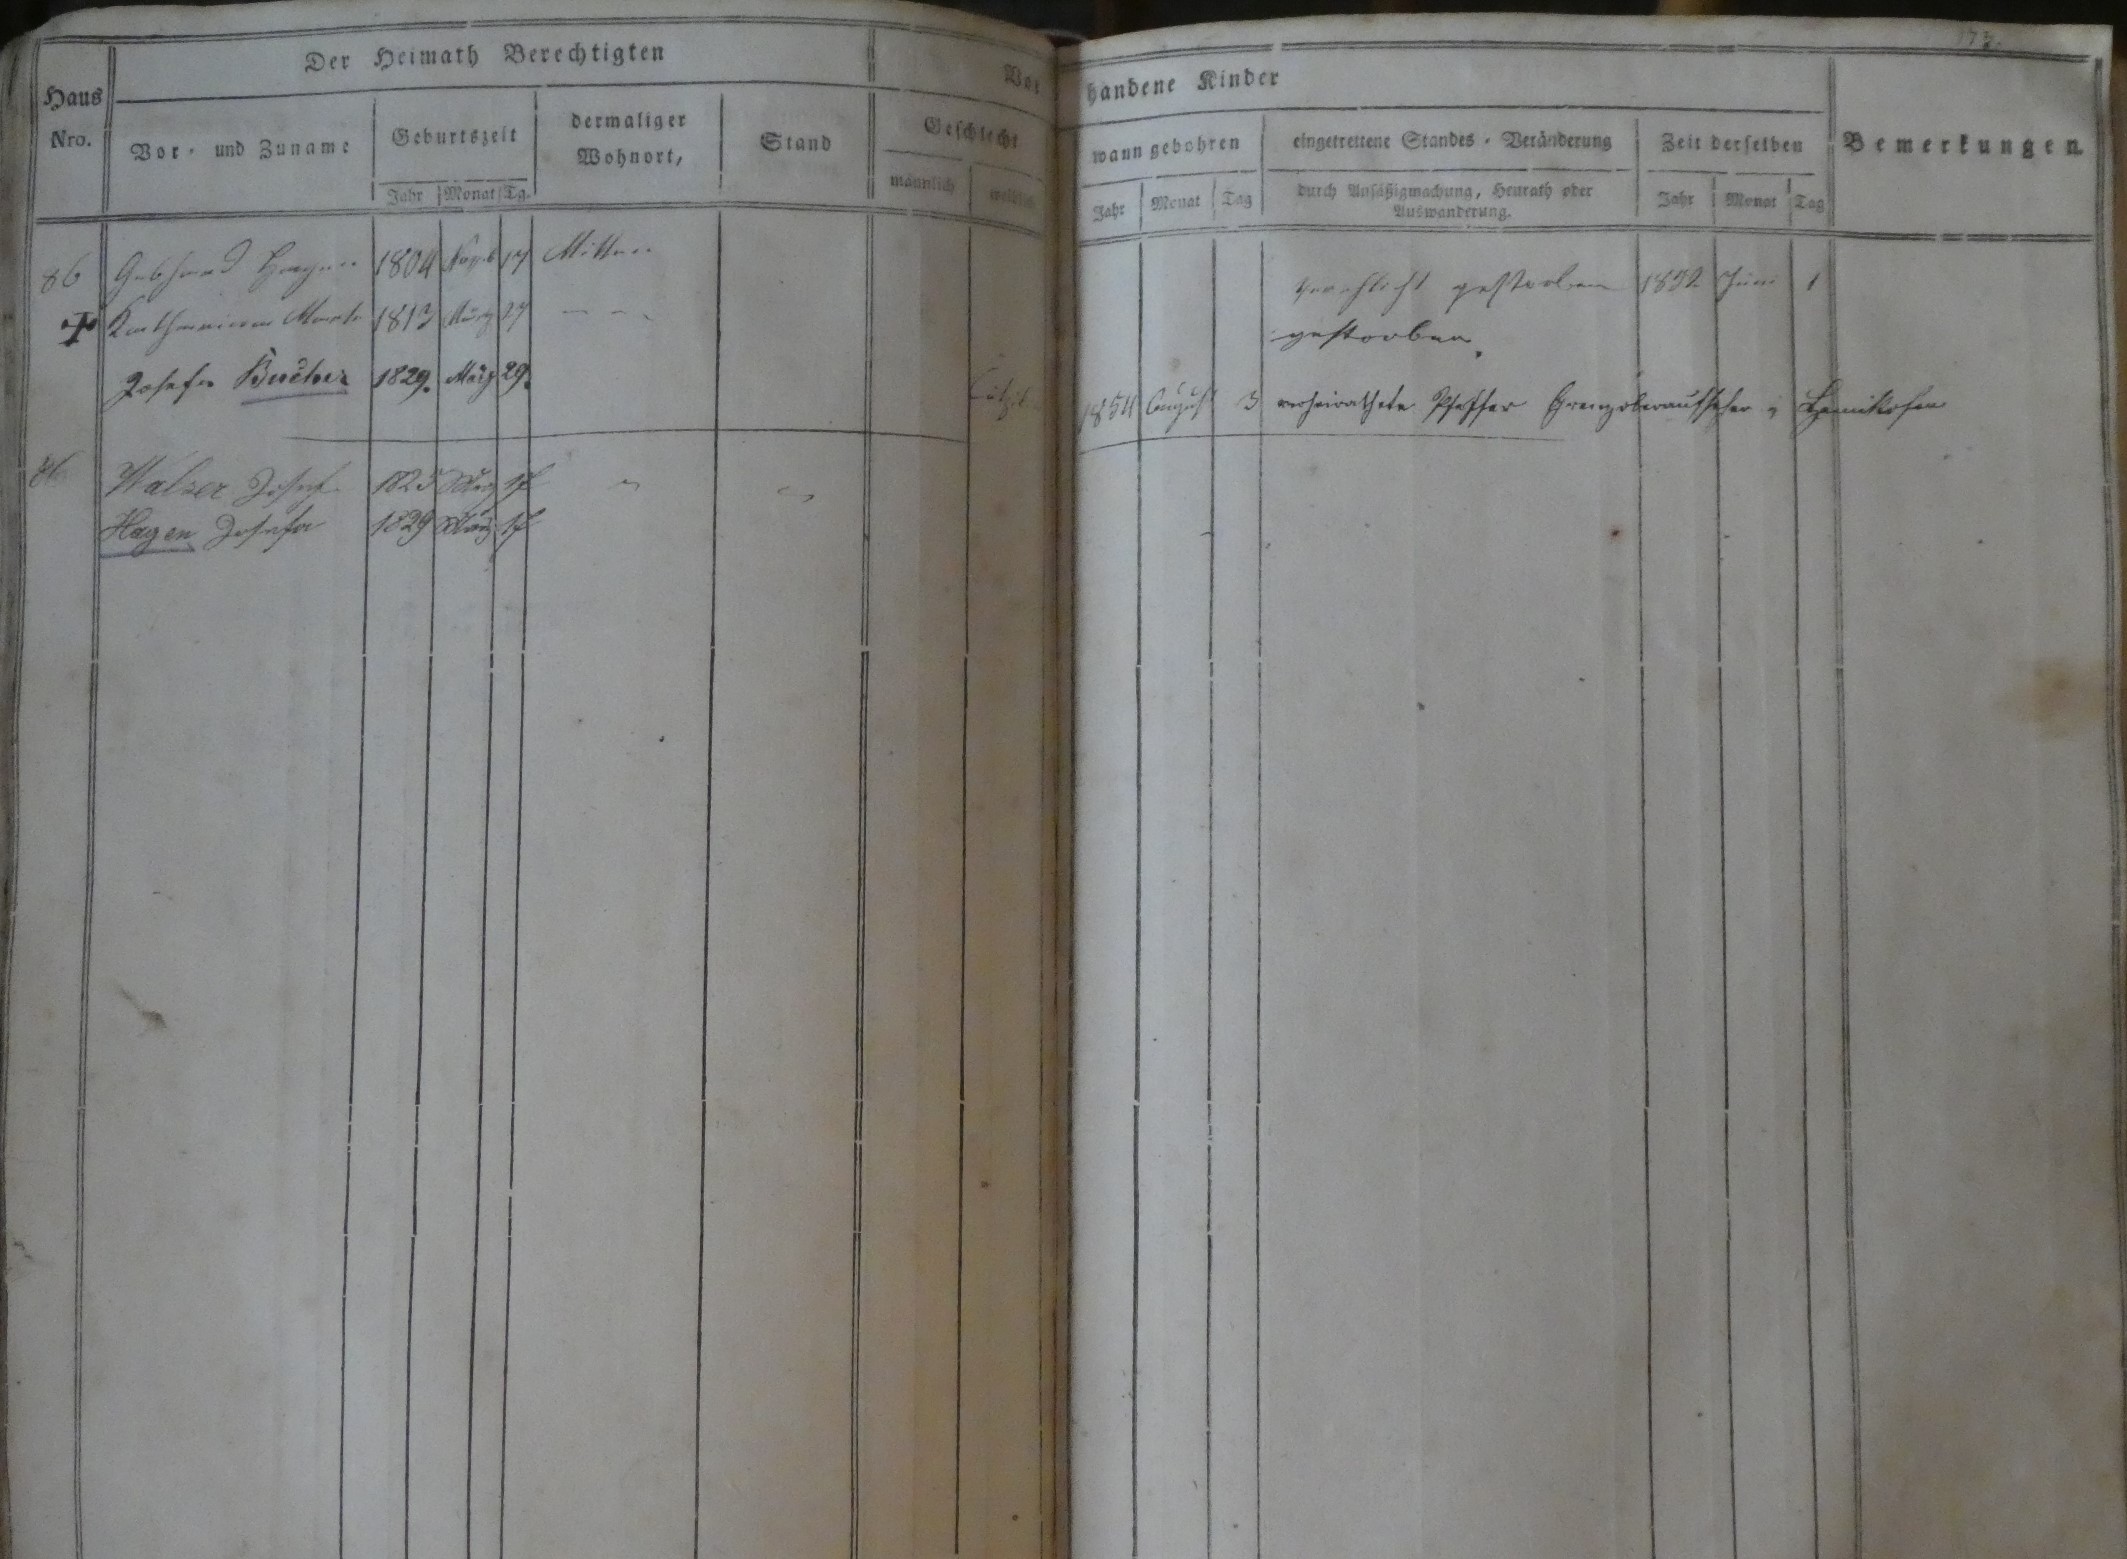 173.
Der Heimath Berechtigten
Vorhandene Kinder
Haus Nro.
Vor- und Zuname
Geburtszeit
dermaliger Wohnort,
Stand
Geschlecht
wann gebohren
eingetrettene Standes-Veränderung
Zeit derselben
Bemerkungen.
Jahr Monat Tg.
männlich weiblich
Jahr Monat Tag
durch Ansäßigmachung, Heurath oder
Auswanderung.
Jahr Monat Tag
86 Gebhard Hagen 1804 17 Mitten gestorben 1852 Juni 1
Katharina 1813 März 27 gestorben
Josefa Bucher 1829. März 29. 1854 August 3 verheirathete Pfeffer Grenzoberaufseher
86 Walser Josef 1825 März
Hagen Josefa 1829 März